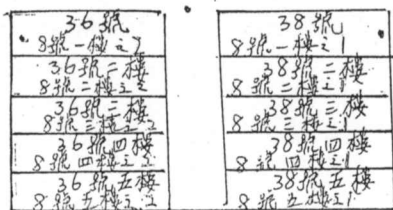 36號
8號一樓之2
36號二樓
8號二樓之2
36號三樓
8號三樓之2
36號四樓
8號四樓之2
36號五樓
8號五樓之2
38號
8號一樓之1
38號二樓
8號二樓之1
38號三樓
8號三樓之1
38號四樓
8號四樓之1
38號五樓
8號五樓之1